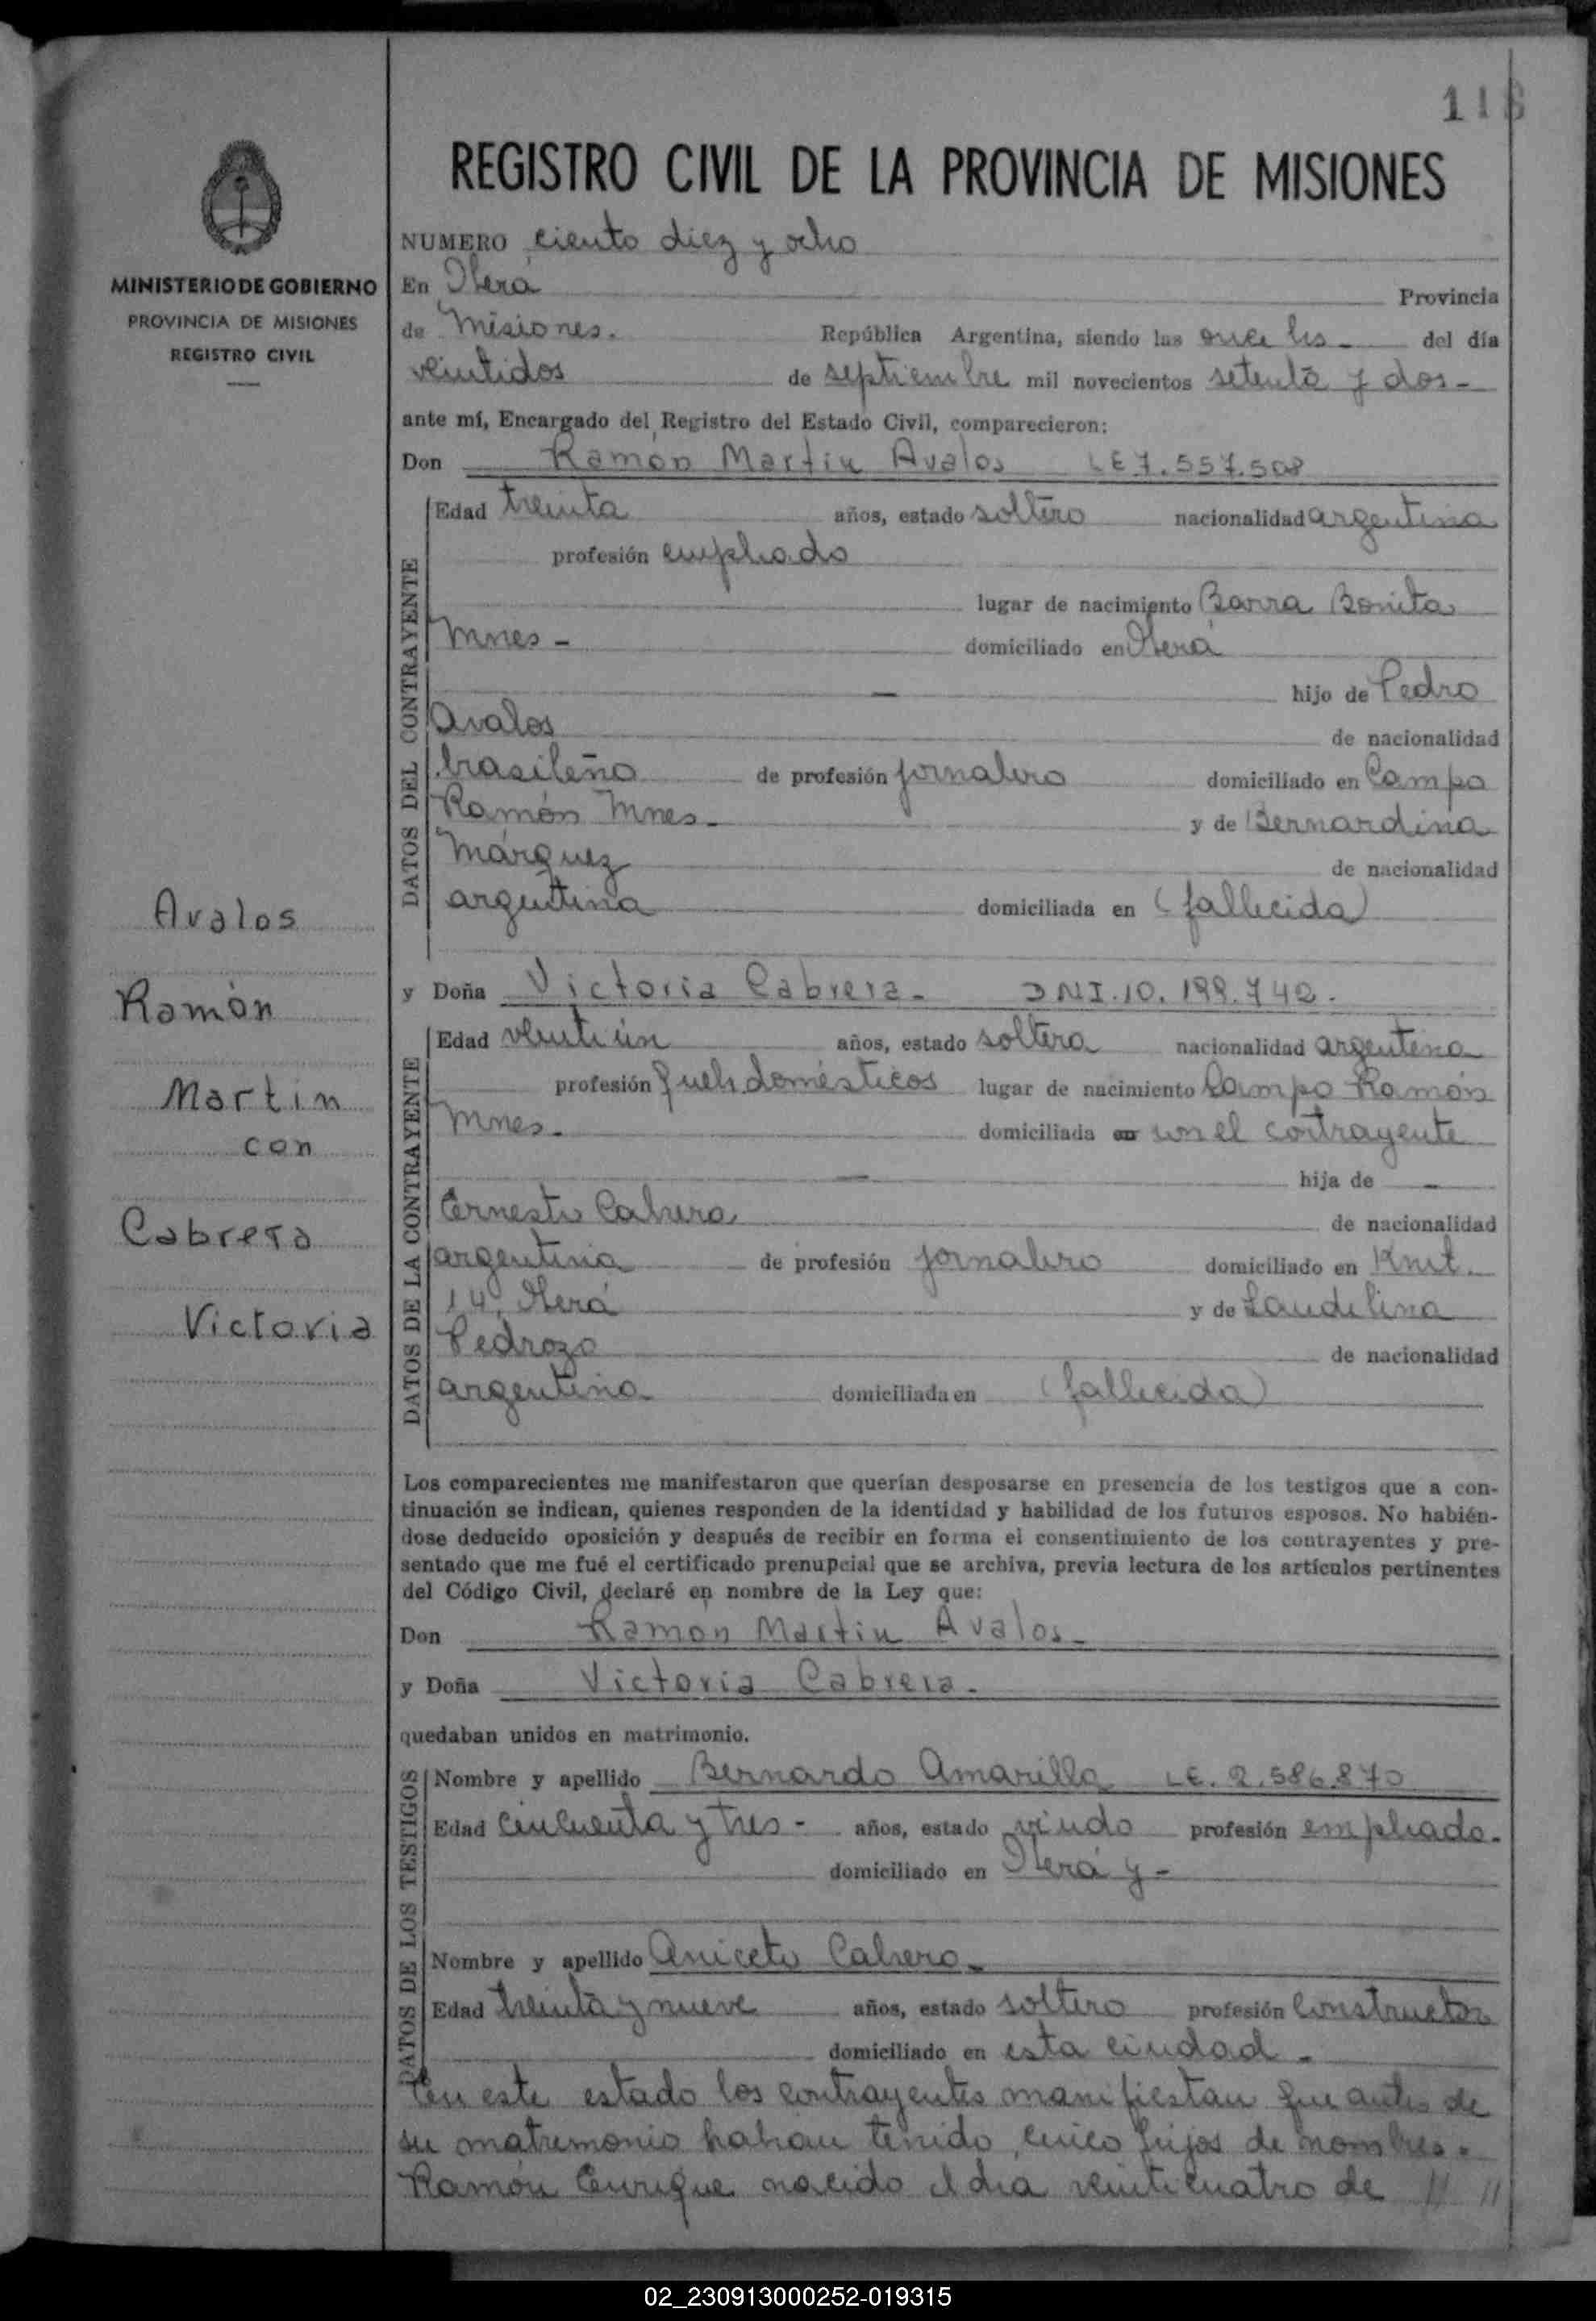 118
REGISTRO CIVIL DE LA PROVINCIA DE MISIONES
MINISTERIO DE GOBIERNO
PROVINCIA DE MISIONES
REGISTRO CIVIL
NUMERO ciento diez y ocho
En Oberá Provincia
de Misiones. República Argentina, siendo las once hs - del día
veintidos de septiembre mil novecientos setenta y dos -
ante mí, Encargado del Registro del Estado Civil, comparecieron:
Don Ramón Martin Avalos LE 7.557.508
DATOS DEL CONTRAYENTE
Edad treinta años, estado soltero nacionalidad argentina
profesión empleado
lugar de nacimiento Barra Bonita
Mnes - domiciliado en Oberá
— hijo de Pedro
Avalos de nacionalidad
brasileño de profesión jornalero domiciliado en Campo
Ramón Mnes - y de Bernardina
Márquez de nacionalidad
argentina domiciliada en (fallecida)
y Doña Victoria Cabrera - DNI. 10. 199.742.
DATOS DE LA CONTRAYENTE
Edad veintiún años, estado soltera nacionalidad argentina
profesión queh domésticos lugar de nacimiento Campo Ramón
Mnes - domiciliada en con el contrayente
— hija de —
Ernesto Cabrera de nacionalidad
argentina de profesión jornalero domiciliado en Kmt.
14, Oberá y de Laudelina
Pedrozo de nacionalidad
argentina domiciliada en (fallecida)
Avalos
Ramón
Martin
con
Cabrera
Victoria
Los comparecientes me manifestaron que querían desposarse en presencia de los testigos que a con-
tinuación se indican, quienes responden de la identidad y habilidad de los futuros esposos. No habién-
dose deducido oposición y después de recibir en forma el consentimiento de los contrayentes y pre-
sentado que me fué el certificado prenupcial que se archiva, previa lectura de los artículos pertinentes
del Código Civil, declaré en nombre de la Ley que:
Don Ramón Martin Avalos -
y Doña Victoria Cabrera -
quedaban unidos en matrimonio.
DATOS DE LOS TESTIGOS
Nombre y apellido Bernardo Amarilla LE. 2.586.870
Edad cincuenta y tres - años, estado viudo profesión empleado -
domiciliado en Oberá y -
Nombre y apellido Aniceto Cabrera -
Edad treinta y nueve años, estado soltero profesión constructor
domiciliado en esta ciudad -
En este estado los contrayentes manifiestan que antes de
su matrimonio habían tenido cinco hijos de nombres -
Ramón Enrique nacido el día veinticuatro de // //
02_230913000252-019315